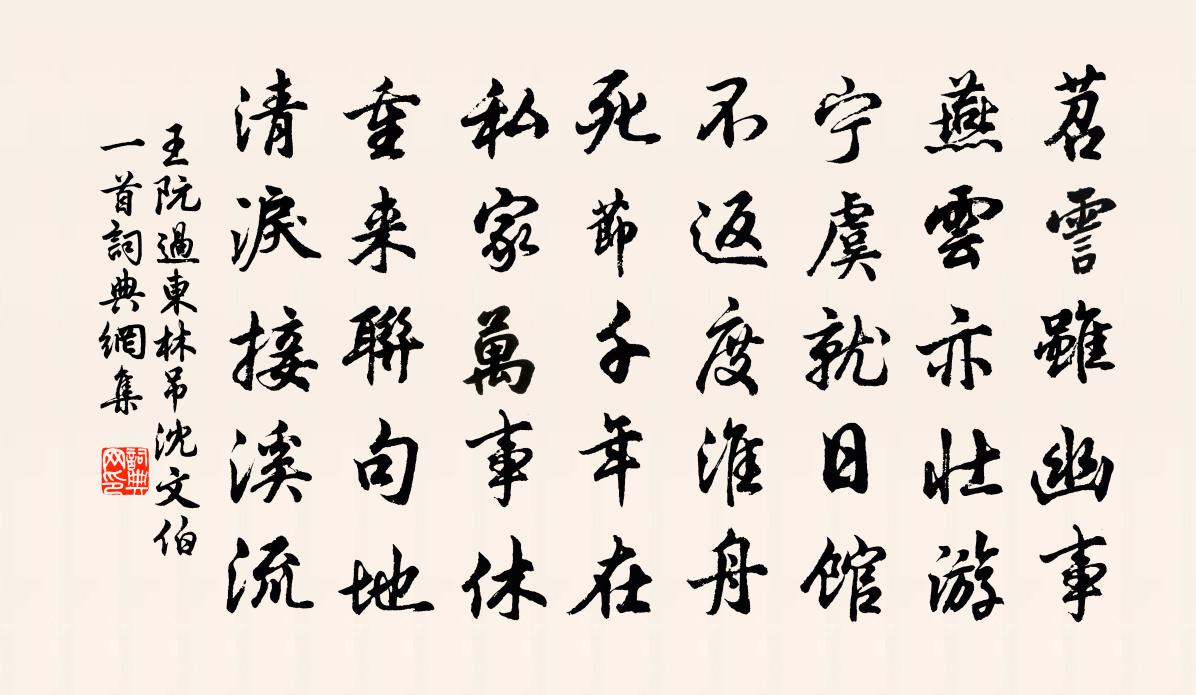 苕霅雖幽事
燕雲亦壮游
宁虞就日館
不返度淮舟
死節千年在
私家萬事休
重来聯句地
清淚接溪流
王阮過東林吊沈文伯
一首詞典網集
詞典网印